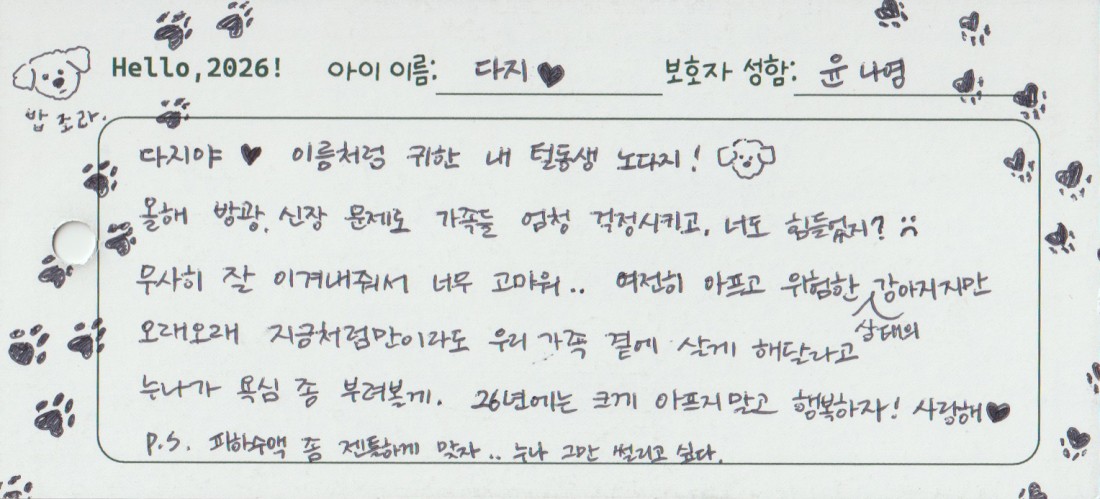 Hello, 2026! 아이 이름: 다지♥ 보호자 성함: 윤나영
밥 조라.
다지야 ♥ 이름처럼 귀한 내 털동생 노다지!
올해 방광, 신장 문제로 가족들 엄청 걱정시키고, 너도 힘들었지? :(
무사히 잘 이겨내줘서 너무 고마워.. 여전히 아프고 위험한 상태의 강아지지만
오래오래 지금처럼만이라도 우리 가족 곁에 살게 해달라고
누나가 욕심 좀 부려볼게. 26년에는 크게 아프지 말고 행복하자! 사랑해♥
P.S. 피하수액 좀 젠틀하게 맞자.. 누나 그만 썰리고 싶다.